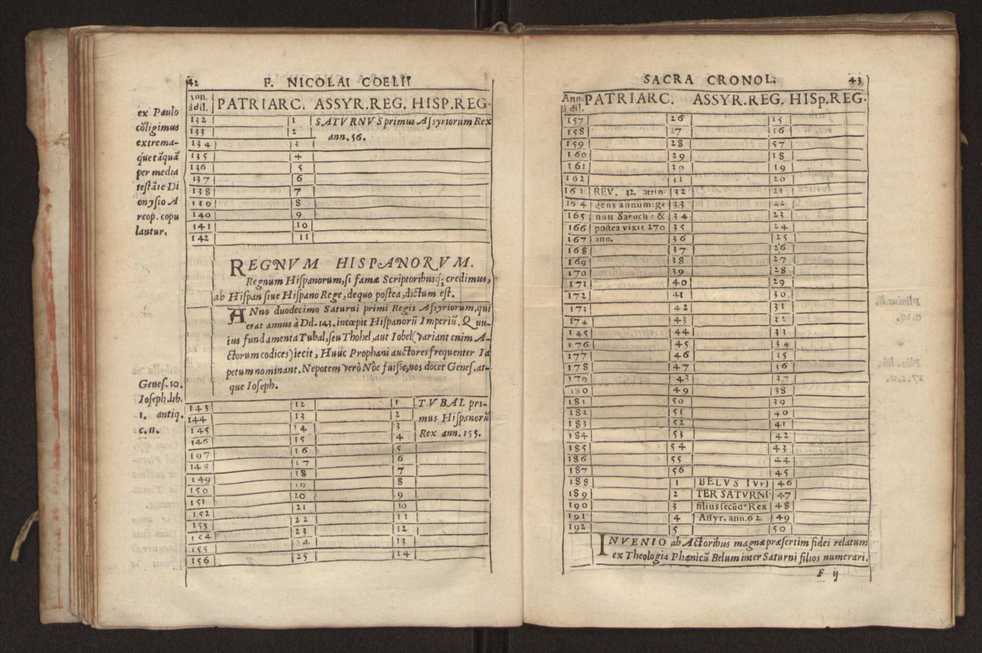 42 F. NICOLAI COELII
PATRIARC. ASSYR.REG. HISP.REG.
ex Paulo
colligimus
extrema-
per media
onysio A
reop. copu
lantur.
132 1 SATVRNVS primus Assyriorum Rex
133 2 ann. 56.
134 3
135 4
136 5
137 6
138 7
8
140 9
141 10
142 11
REGNVM HISPANORVM.
Regnum Hispanorum, si famæ Scriptoribusq; credimus,
ab Hispan siue Hispano Rege, de quo postea, dictum est.
ANno duodecimo Saturni primi Regis Assyriorum, qui
erat annus à Dil. 143. incœpit Hispanorū Imperiū. Quu-
ius fundamenta Tubal, seu Thobel, aut Iobel (variant enim A-
ctorum codices) iecit, Hunc Prophani auctores frequenter Ia
petum nominant. Nepotem verò Nôe fuisse, nos docet Genes. at-
que Ioseph.
Genes. 10.
Ioseph. lib.
1. antiq.
c. 11.
143 12 1 TVBAL pri-
144 13 2 mus Hispanorū
145 14 3 Rex ann. 155.
146 15 4
16 5
148 17 6
149 18 7
150 19 8
151 20 9
152 21 10
153 22 11
154 23 12
155 24 13
156 25 14
SACRA CRONOL. 43
PATRIARC. ASSYR.REG. HISP.REG.
157 26 15
158 27 16
159 28 57
160 29 18
161 30 19
162 31 20
163 REV. 32. attin- 32 21
164 gens annum: ge 33 22
165 nuit Saroch: & 34 23
166 postea vixit 270 35 24
167 ann. 36 25
168 37 26
169 38 27
170 39 28
171 40 29
172 41 30
173 42 31
174 43 32
145 44 33
176 45 34
177 46 35
178 47 36
179 48 37
180 49 38
181 50 39
182 51 40
183 52 41
184 53 42
185 54 43
186 55 44
187 56 45
188 1 BELVS IVPI 46
189 2 TER SATVRNI 47
190 3 filius secūd⁹ Rex 48
191 4 Assyr. ann. 62. 49
192 5 50
INVENIO ab Actoribus magnæ præsertim fidei relatum
ex Theologia Phœnicū Belum inter Saturni filios numerari.
F ij